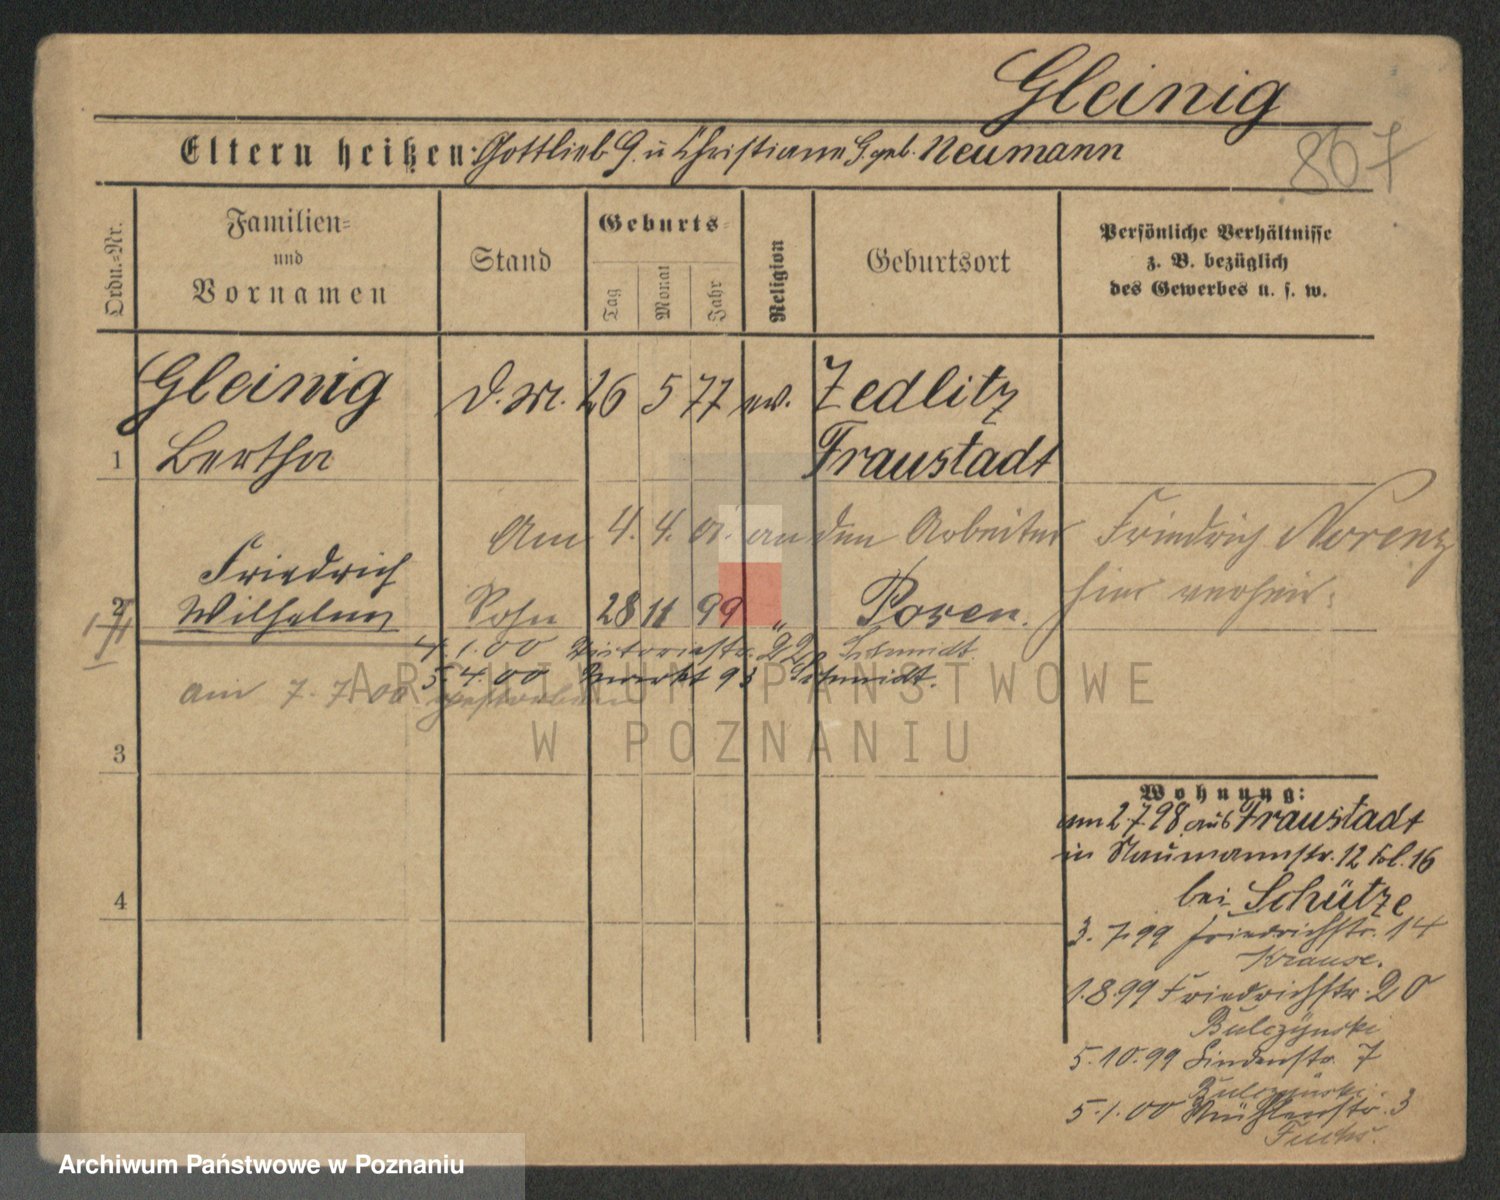 Gleinig
867
Eltern heißen: Gottlieb G. u Christiane G. geb. Neumann
Ordn.-Nr.
Familien-
und
Vornamen
Stand
Geburts-
Tag
Monat
Jahr
Religion
Geburtsort
Persönliche Verhältnisse
z. B. bezüglich
des Gewerbes u. s. w.
Gleinig D. M. 26 5 77 ev. Zedlitz
1 Bertha Fraustadt
Am 4. 4. 01. an den Arbeiter Friedrich Norenz
hier verheir.
Friedrich
2 Wilhelm Sohn 28 11 99 „ Posen.
4. 1. 00 Victoriastr. 22 Schmidt
5. 4. 00 Markt 93 Schmidt.
am 7. 7. 00 gestorben
3
4
Wohnung:
am 2.7.98 aus Fraustadt
in Naumannstr. 12 Kol. 16
bei Schütze
3. 7 99 Friedrichstr. 14
Krause.
1. 8 99 Friedrichstr. 20
Bulczynski
5. 10. 99 Lindenstr. 7
Bulczynski
5. 1. 00 Mühlenstr. 3
Fuchs.
ARCHIWUM PAŃSTWOWE
W POZNANIU
Archiwum Państwowe w Poznaniu